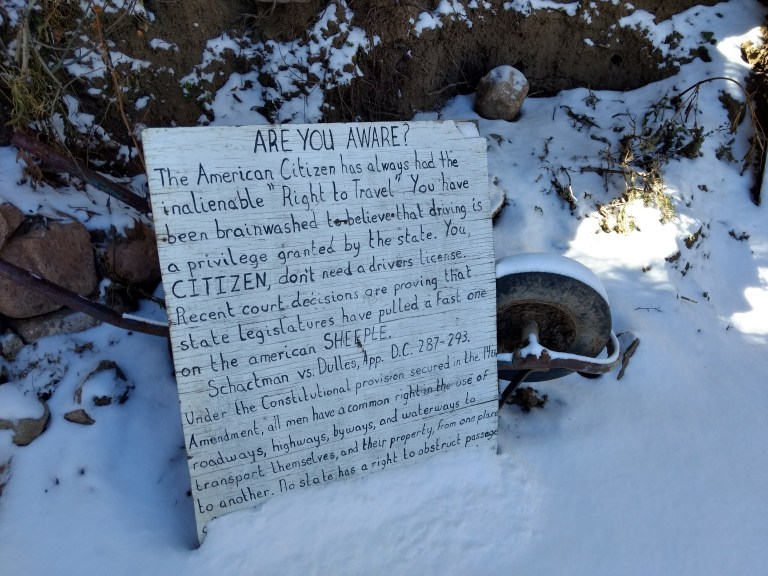 ARE YOU AWARE?
The American Citizen has always had the
inalienable "Right to Travel" You have
been brainwashed to believe that driving is
a privilege granted by the state. You,
CITIZEN, don't need a drivers license.
Recent court decisions are proving that
state legislatures have pulled a fast one
on the american SHEEPLE.
Schactman vs. Dulles, App. D.C. 287-293.
Under the Constitutional provision secured in the 14th
Amendment, all men have a common right in the use of
roadways, highways, byways, and waterways to
transport themselves, and their property, from one place
to another. No state has a right to obstruct passage